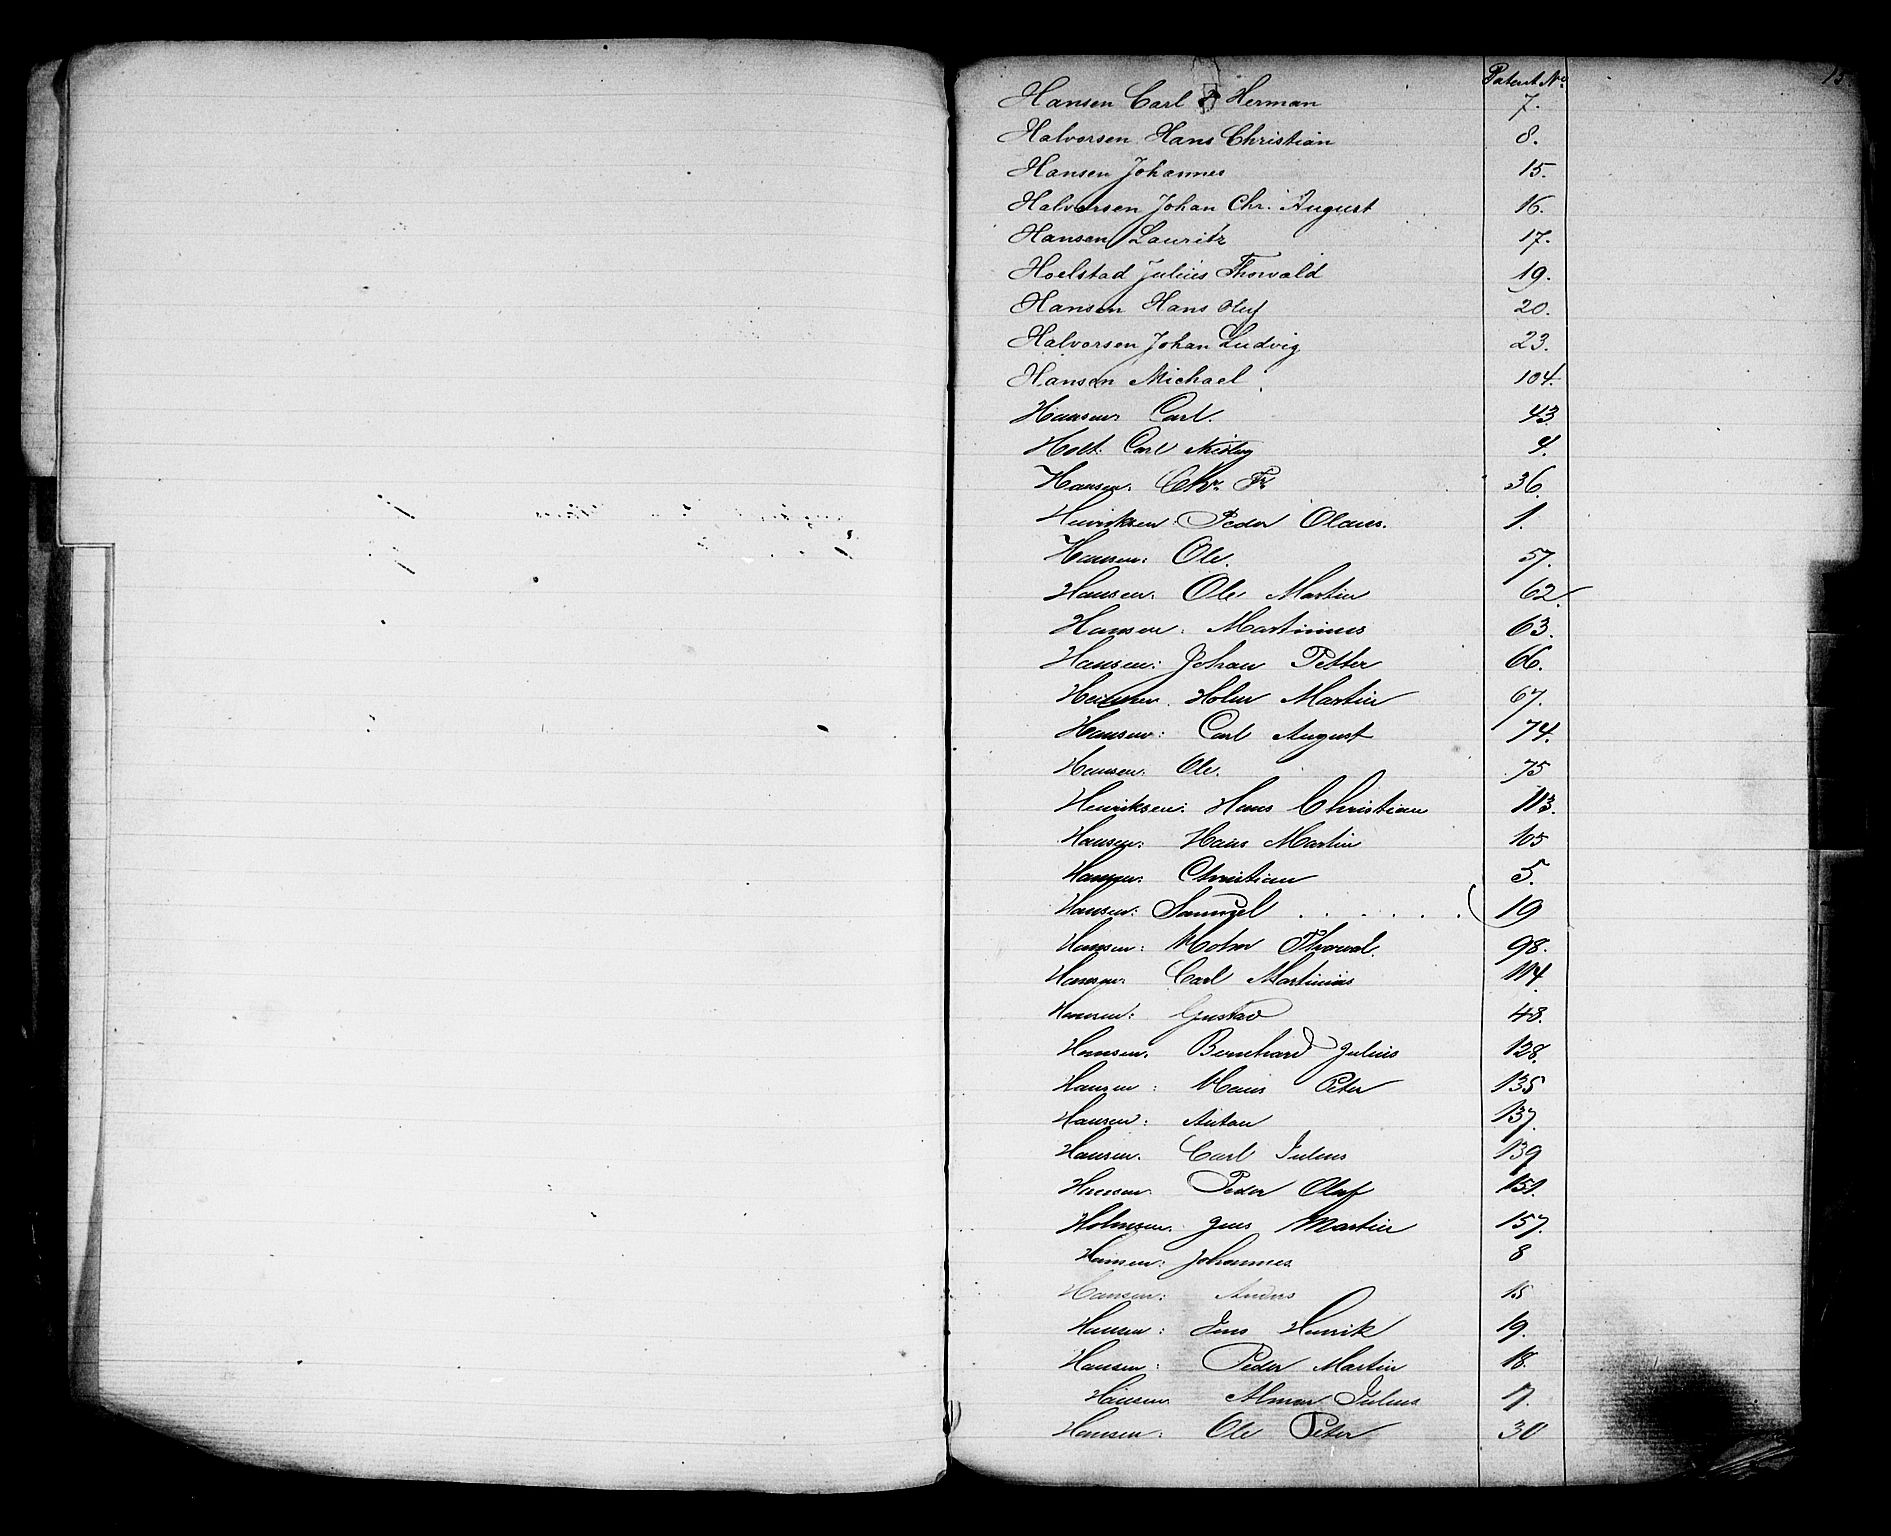 Patent No.
15
Hansen Carl Herman 7.
Halvorsen Hans Christian 8.
Hansen Johannes 15.
Halvorsen Johan Chr. August 16.
Hansen Lauritz 17.
Hoelstad Julius Thorvald 19.
Hansen Hans Oluf 20.
Halvorsen Johan Ludvig 23.
Hansen Michael 104.
Hansen Carl. 43.
Holt. Carl 4.
Hansen. Chr. Fr. 36.
Henriksen. Peder Olaus. 1.
Hansen: Ole. 57.
Hansen: Ole Martin 62.
Hansen. Martinius 63.
Hansen: Johan Petter 66.
Holm Martin 67.
Hansen: Carl August 74.
Hansen. Ole. 75
Henriksen: Hans Christian 113.
Hansen: Hans Martin 105
Hansen. Christian 5.
Hansen: Samuel . . . . . . ( 19
Hansen: Holm Thorval. 98.
Hansen: Carl Martinius 114.
Hansen: Gustav 43.
Hansen. Bernhard Julius 128.
Hansen: Hans Peter 135
Hansen: Anton 137.
Hansen. Carl Julius 139
Hansen. Peder Oluf 151.
Holmsen. Jens Martin 157.
Hansen: Johannes 8
Hansen: Anders 15
Hansen: Jens Henrik 19.
Hansen: Peder Martin 18.
Hansen Almar Julius 17.
Hansen. Ole Peter 30